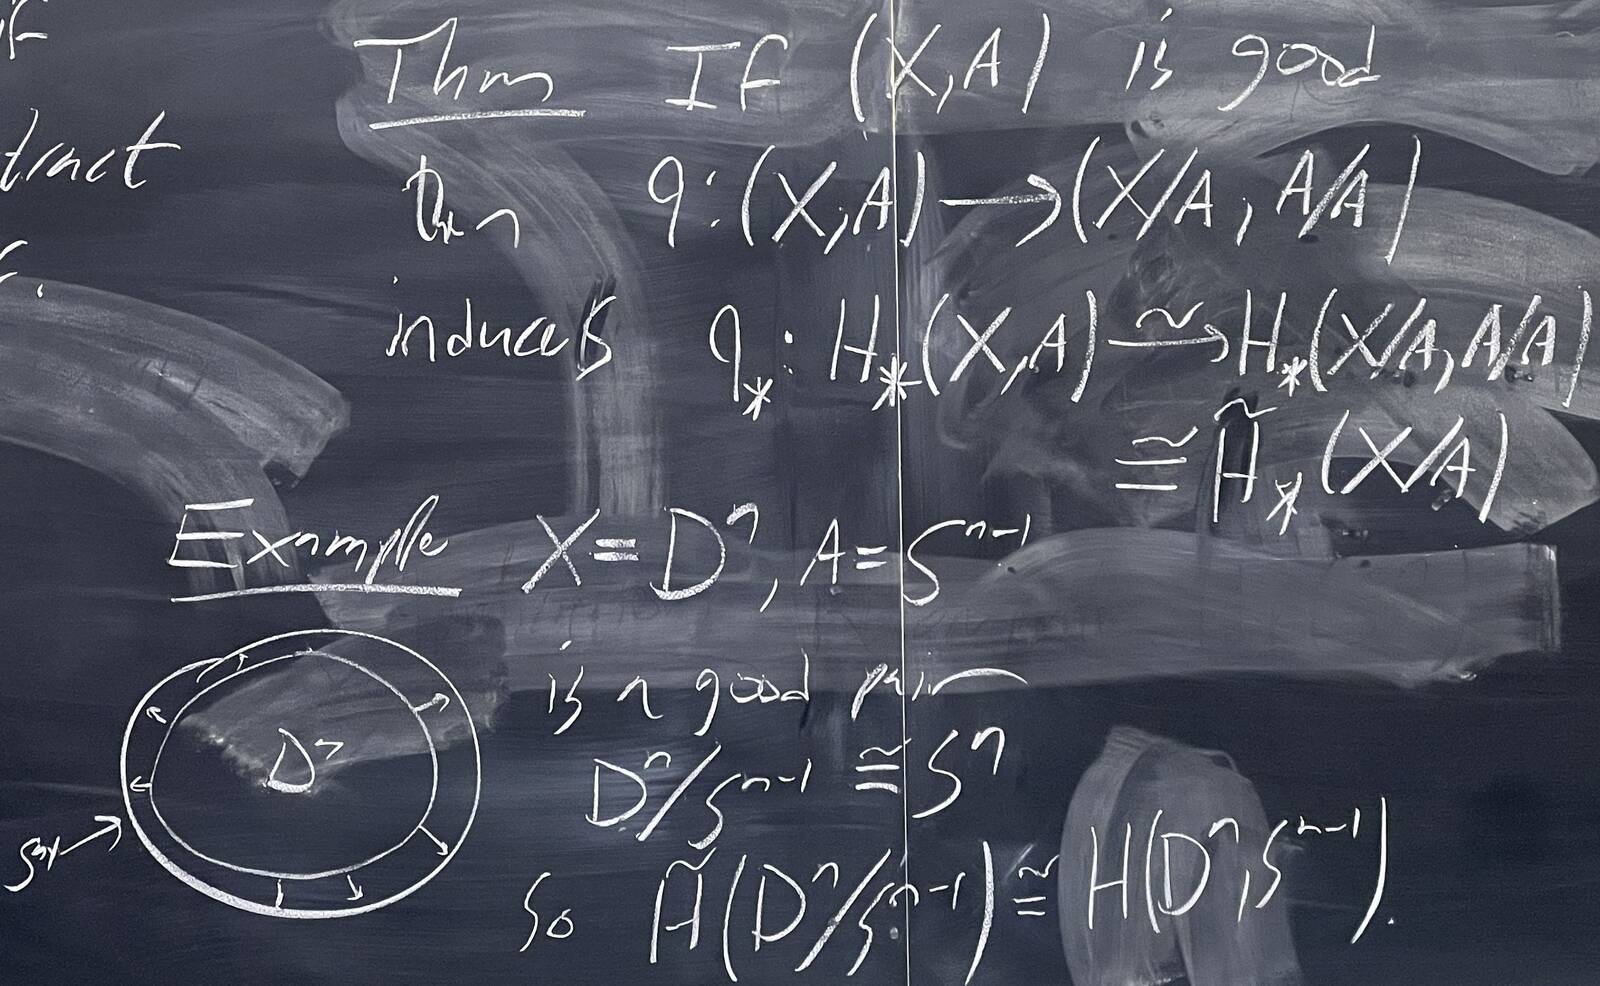 if
tract
Thm If (X,A) is good
then q: (X,A) → (X/A, A/A)
induces q_*: H_*(X,A) ≅→ H_*(X/A, A/A)
≅ H̃_*(X/A)
Example X = Dⁿ, A = Sⁿ⁻¹
is a good pair
Dⁿ
Dⁿ/Sⁿ⁻¹ ≅ Sⁿ
Sⁿ⁻¹
So H̃(Dⁿ/Sⁿ⁻¹) ≅ H(Dⁿ, Sⁿ⁻¹).